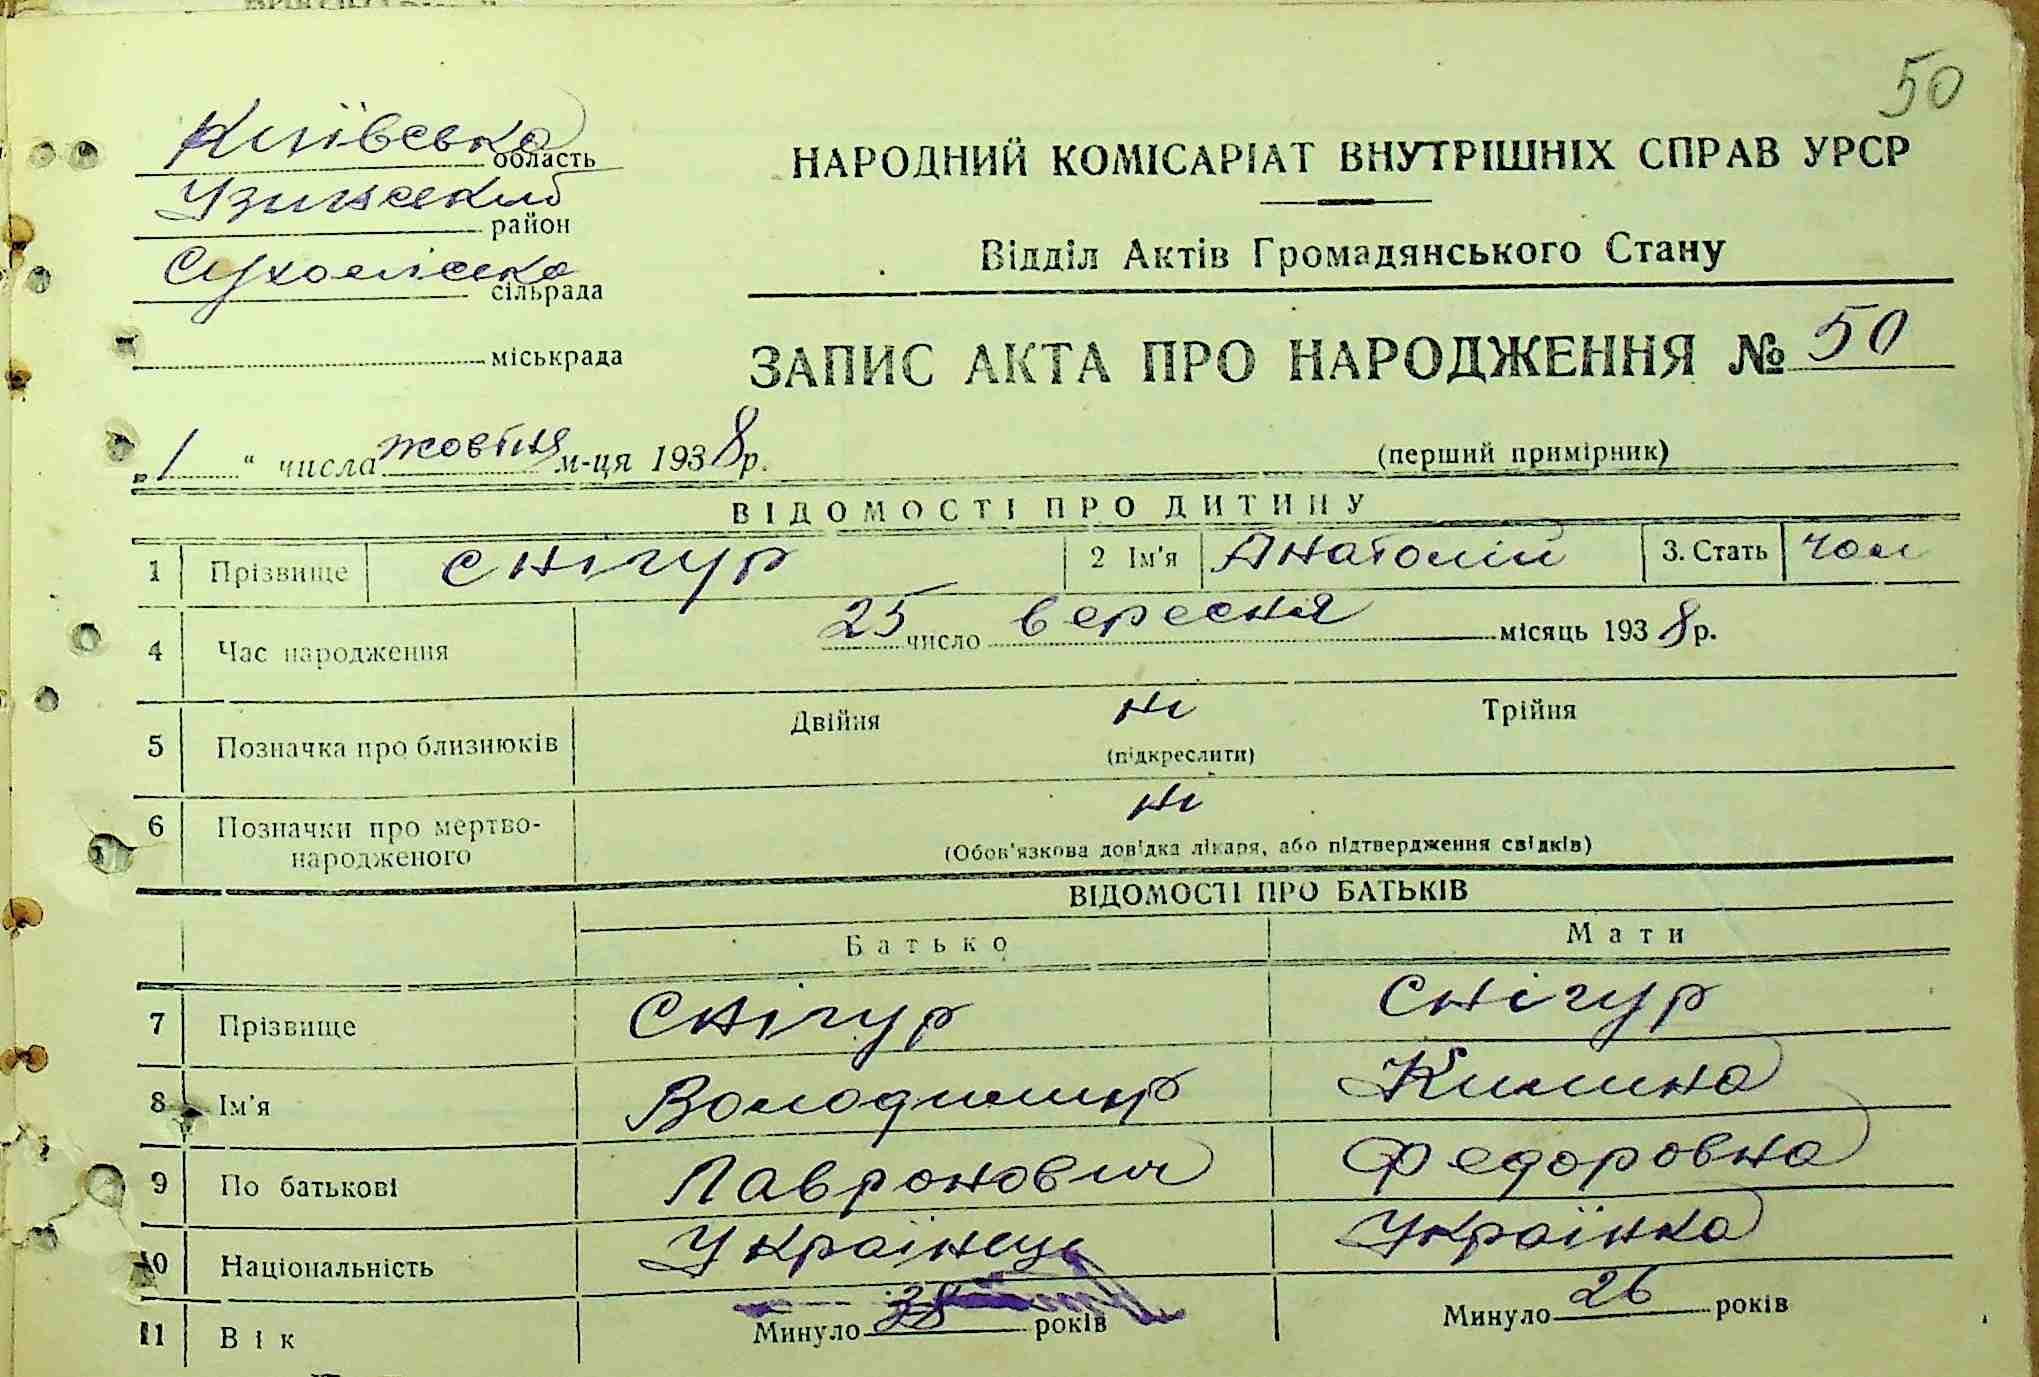 50
Київська область
Узинський район
Сухоліська сільрада
міськрада
НАРОДНИЙ КОМІСАРІАТ ВНУТРІШНІХ СПРАВ УРСР
Відділ Актів Громадянського Стану
ЗАПИС АКТА ПРО НАРОДЖЕННЯ № 50
„1“ числа жовтня м-ця 1938 р.
(перший примірник)
ВІДОМОСТІ ПРО ДИТИНУ
1 Прізвище Снігур 2 Ім'я Анатолій 3. Стать чол
4 Час народження 25 число вересня місяць 1938 р.
5 Позначка про близнюків Двійня ні Трійня
(підкреслити)
6 Позначки про мертво-
народженого ні
(Обов'язкова довідка лікаря, або підтвердження свідків)
ВІДОМОСТІ ПРО БАТЬКІВ
Батько Мати
7 Прізвище Снігур Снігур
8 Ім'я Володимир Килина
9 По батькові Лавронович Федоровна
10 Національність Українець Українка
11 Вік Минуло 38 років Минуло 26 років